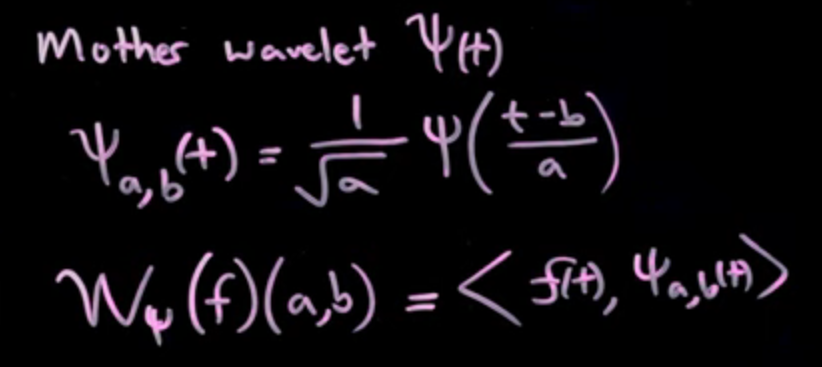 Mother wavelet Ψ(t)
Ψa,b(t) = 1/√a Ψ((t-b)/a)
WΨ(f)(a,b) = <f(t), Ψa,b(t)>